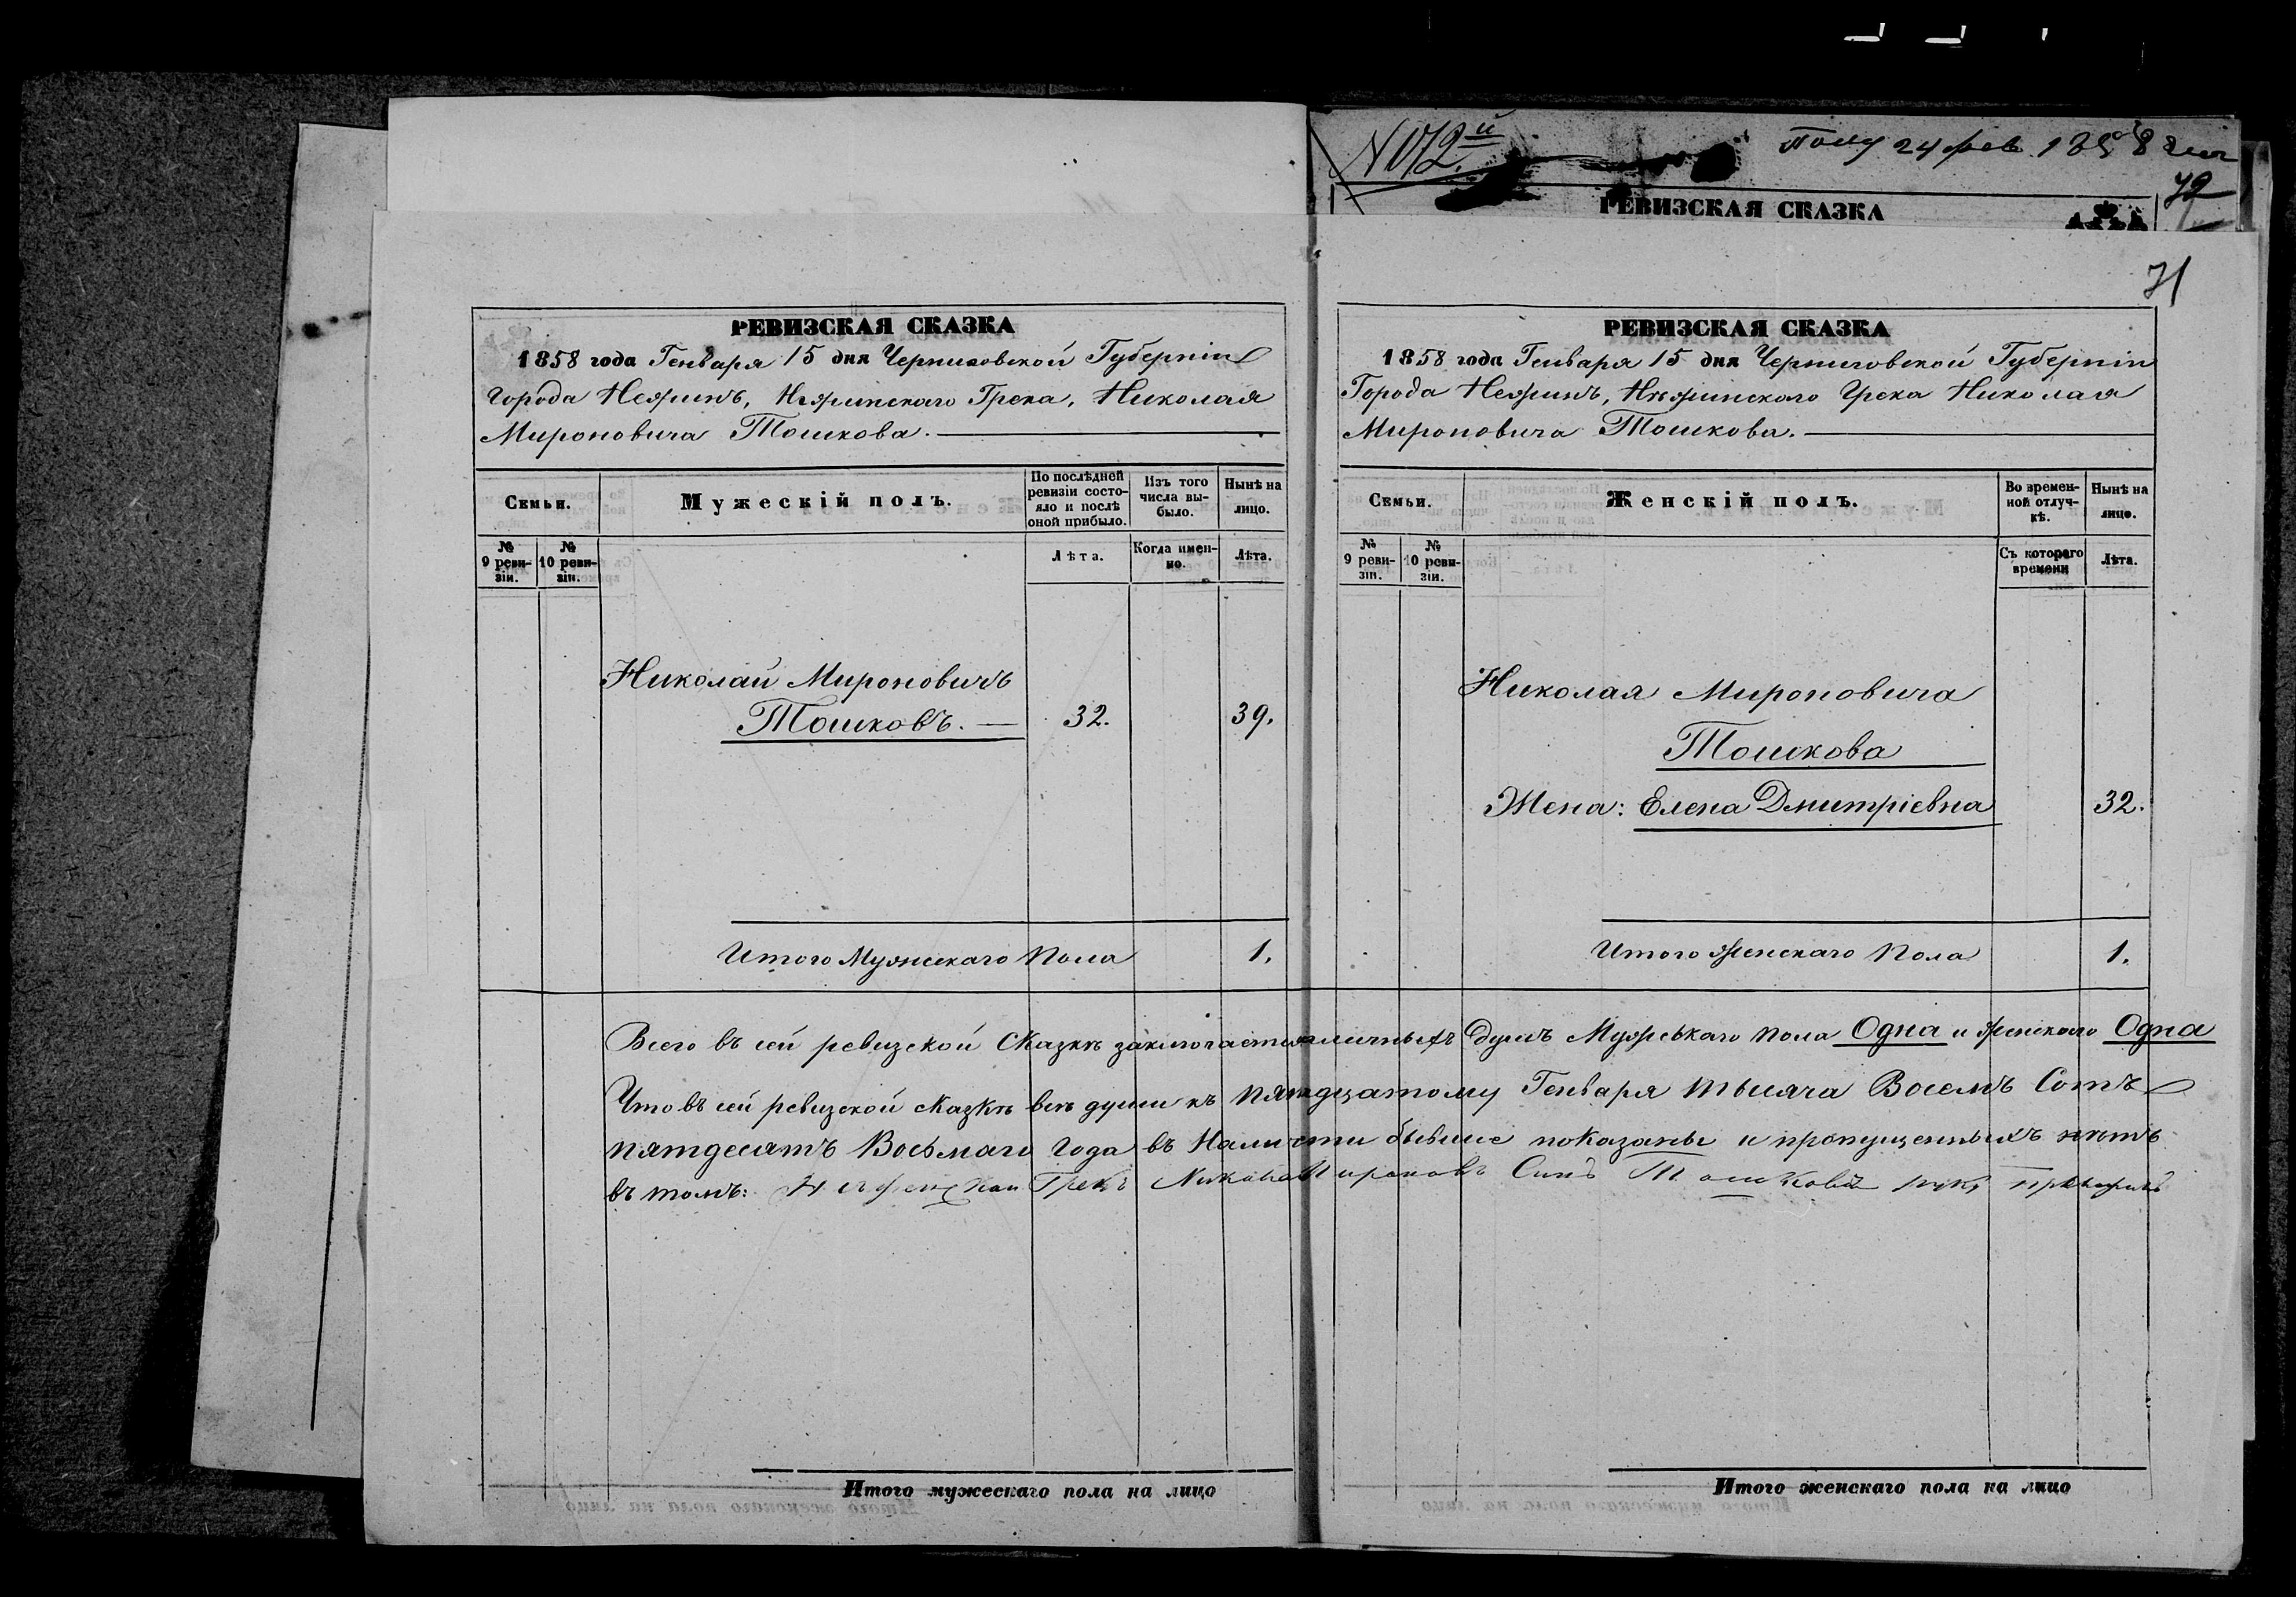 № 72й
Полу 24 фев. 1858 года
72
РЕВИЗСКАЯ СКАЗКА
71
РЕВИЗСКАЯ СКАЗКА
1858 года Генваря 15 дня Черниговской Губерніи
города Нежинъ, Нѣжинскаго Грека, Николая
Мироновича Тошкова.
Семьи.
Мужескій полъ.
По послѣдней
ревизіи состо-
яло и послѣ
оной прибыло.
Изъ того
числа вы-
было.
Нынѣ на
лицо.
№
9 реви-
зіи.
№
10 реви-
зіи.
Лѣта.
Когда имен-
но.
Лѣта.
Николай Мироновичъ
Тошковъ. 32. 39.
Итого Мужескаго Пола 1.
РЕВИЗСКАЯ СКАЗКА
1858 года Генваря 15 дня Черниговской Губерніи
Города Нежинъ, Нѣжинскаго Грека Николая
Мироновича Тошкова.
Семьи.
Женскій полъ.
Во времен-
ной отлуч-
кѣ.
Нынѣ на
лицо.
№
9 реви-
зіи.
№
10 реви-
зіи.
Съ котораго
времени
Лѣта.
Николая Мироновича
Тошкова
Жена: Елена Дмитріевна 32.
Итого женскаго Пола 1.
Всего въ сей ревизской Сказкѣ заключается личныхъ душъ Мужеськаго пола Одна и женскаго Одна
Что въ сей ревизской сказкѣ всѣ души къ пятнадцатому Генваря тысяча Восемъ Сотъ
пятдесятъ Восьмаго года въ Наличсти бывшіе показаны и пропущенныхъ нѣтъ
въ томъ: Грекъ Синъ Тошковъ руку
Итого мужескаго пола на лицо
Итого женскаго пола на лицо